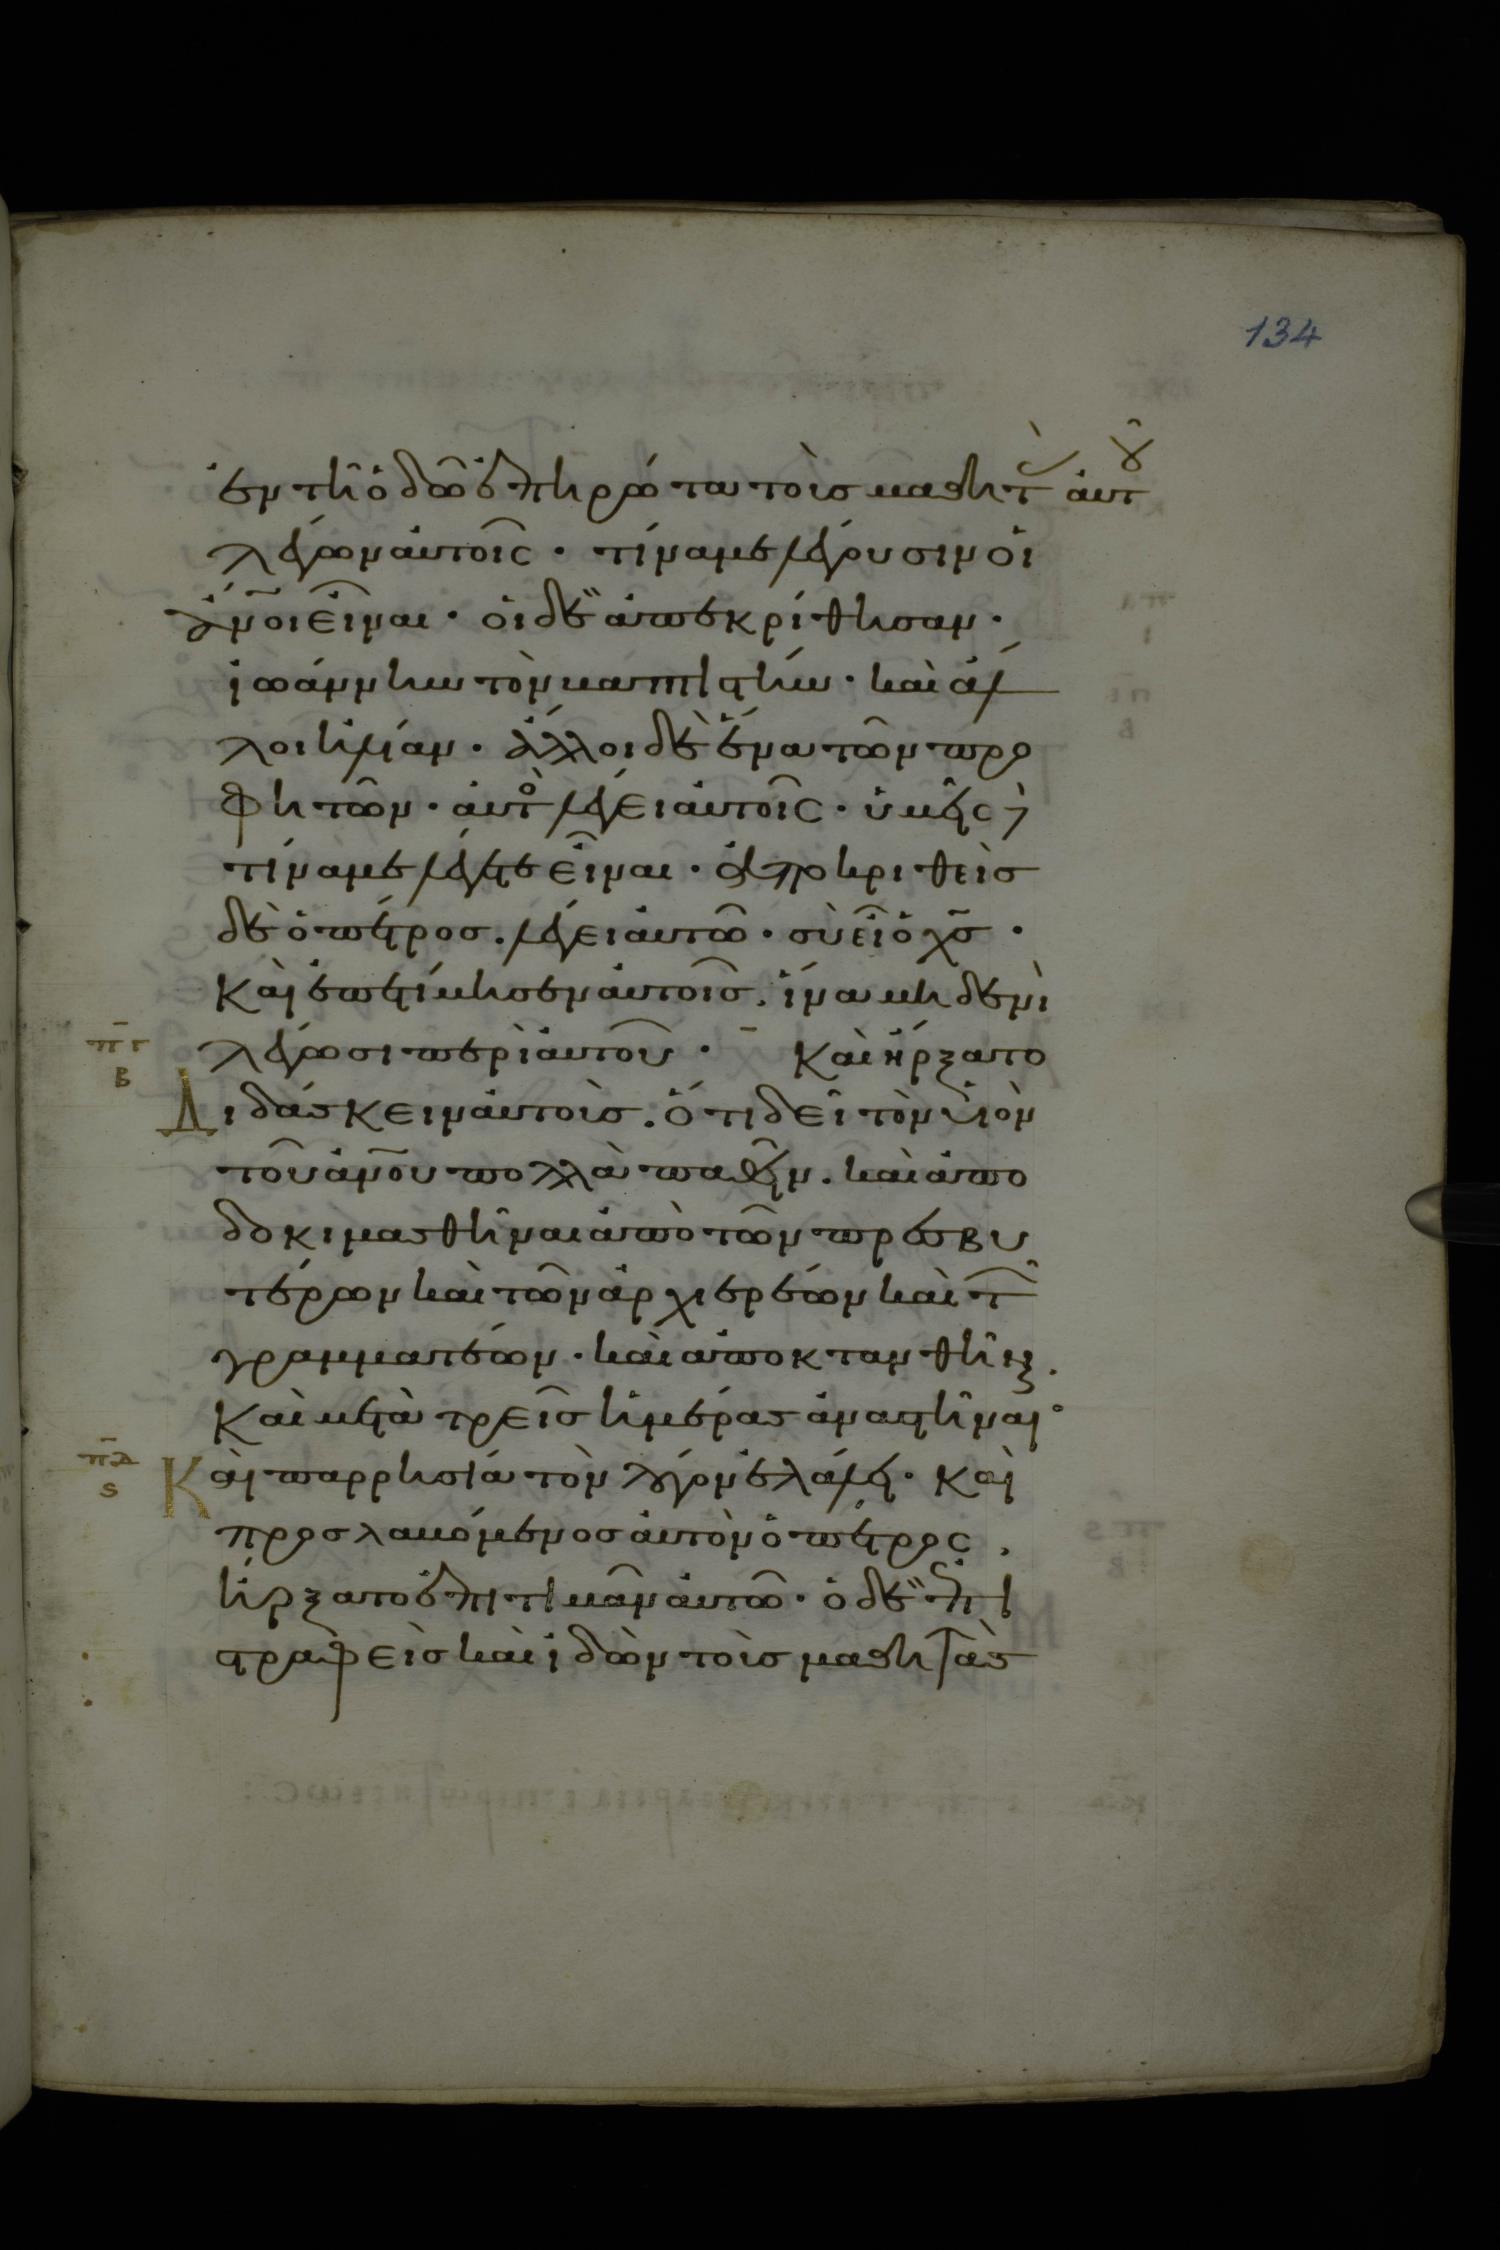 134
ἐν τῆ ὁδῶ ἐπηρώτα τοὺς μαθητ(ὰς) αὐτ(οῦ)
λέγων αὐτοῖς · τίνα με λέγουσιν οἱ
ἄν̅ο̅ι εἶναι · οἱ δὲ ἀπεκρίθησαν ·
ἰωάννην τὸν βαπτιστήν · καὶ ἄλ
λοι ἠλίαν · ἄλλοι δὲ ἕνα τῶν προ
φητῶν · αὐτὸ(ς) λέγει αὐτοῖς · ὑμεῖς δὲ
τίνα με λέγετε εἶναι · ἀποκριθεὶς
δὲ ὁ πέτρος . λέγει αὐτῶ · σὺ εἶ ὁ χ̅ς̅ ·
Καὶ ἐπετίμησεν αὐτοῖς . ἵνα μηδενὶ
λέγωσι περὶ αὐτοῦ · Καὶ ἤρξατο
π̅γ̅
β
Διδάσκειν αὐτοὺς . ὅτι δεῖ τὸν υἱὸν
τοῦ ἀν̅ο̅υ πολλὰ παθεῖν . καὶ ἀπο
δοκιμασθῆναι ἀπὸ τῶν πρεσβυ
τέρων καὶ τῶν ἀρχιερέων καὶ τ(ῶν)
γραμματέων · καὶ ἀποκτανθῆναι .
Καὶ μετὰ τρεῖς ἡμέρας ἀναστῆναι ·
π̅δ̅
ς
Καὶ παρρησία τὸν λόγον ἐλάλει · Καὶ
προσλαβόμενος αὐτὸν ὁ πέτρος ,
ἤρξατο ἐπιτιμᾶν αὐτῶ · ὁ δὲ ἐπι
στραφεὶς καὶ ἰδὼν τοὺς μαθητὰς